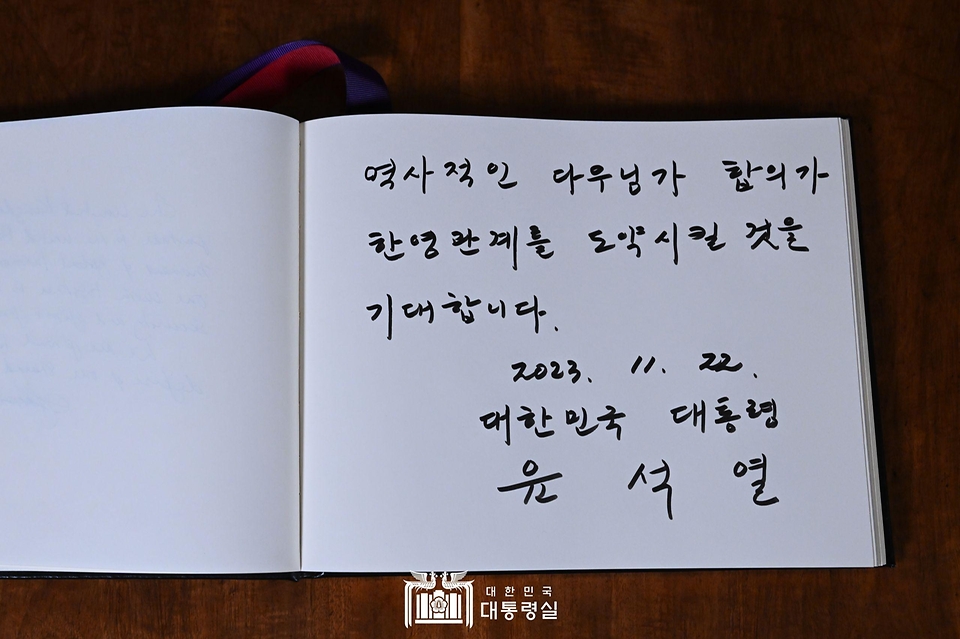 역사적인 다우닝가 합의가
한영관계를 도약시킬 것을
기대합니다.
2023. 11. 22.
대한민국 대통령
윤 석 열
대한민국
대통령실